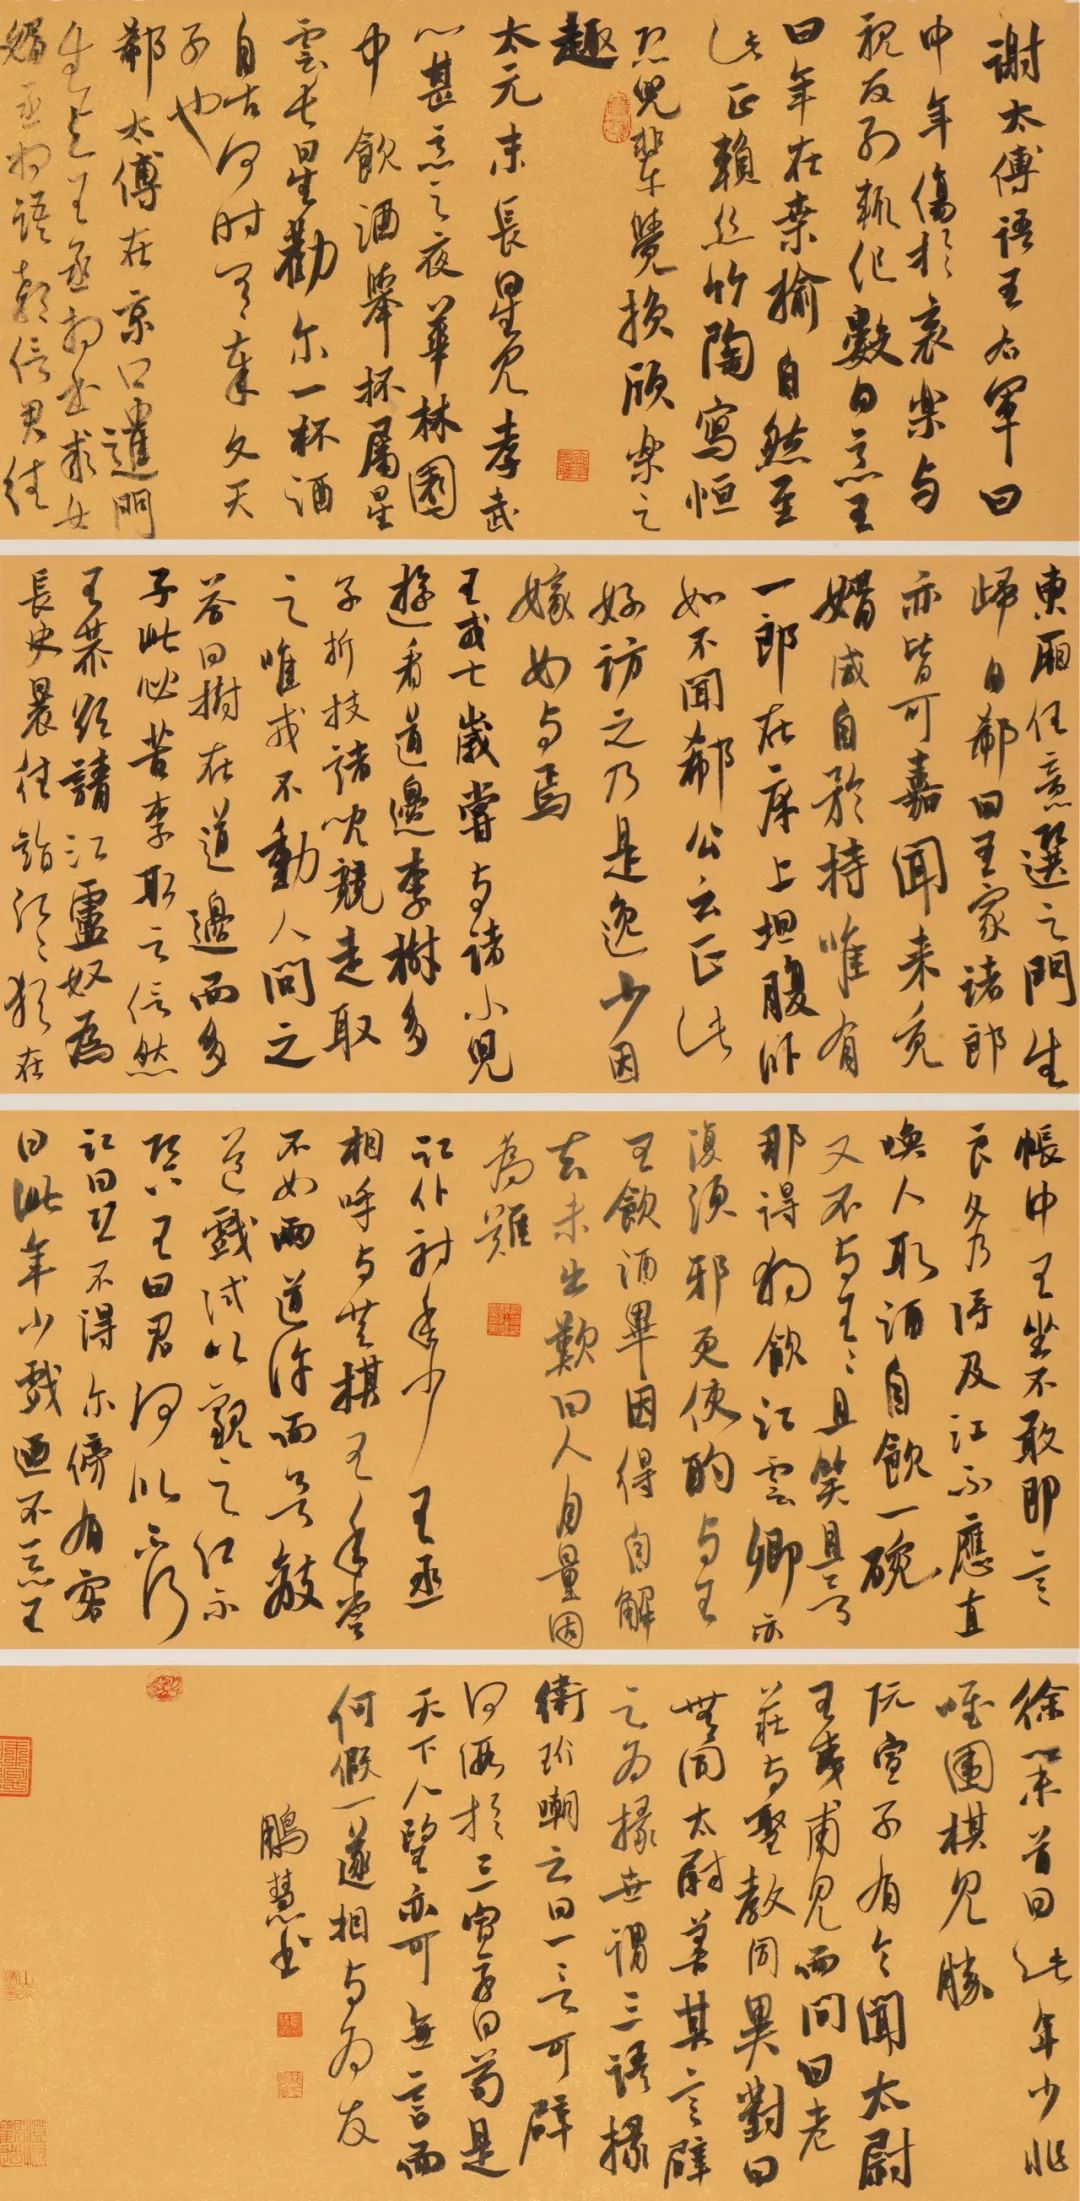 謝太傅語王右軍曰
中年傷於哀樂与
親友別輒作數日惡王
曰年在桑榆自然至
此正賴絲竹陶寫恒
恐兒輩覺損欣樂之
趣
太元末長星見孝武
心甚惡之夜華林園
中飲酒舉杯屬星
雲長星勸尔一杯酒
自古何時有萬歲天
子也
郗太傅在京口遣門
生与王丞相書求女
婿丞相語郗信君往
東廂任意選之門生
歸白郗曰王家諸郎
亦皆可嘉聞来覓
婿咸自矜持唯有
一郎在床上坦腹卧
如不聞郗公云正此
好訪之乃是逸少因
嫁女与焉
王戎七歲嘗与諸小兒
遊看道邊李樹多
子折枝諸兒競走取
之唯戎不動人問之
答曰樹在道邊而多
子此必苦李取之信然
王恭欲請江盧奴為
長史晨往詣江江猶在
帳中王坐不敢即言
良久乃得及江不應直
喚人取酒自飲一碗
又不与王王且笑且言
那得獨飲江雲卿亦
復須邪更使酌与王
王飲酒畢因得自解
去未出歎曰人自量固
為難
江仆射年少王丞
相呼与共棋王手嘗
不如兩道許而欲敵
道戲試以觀之江不
即下王曰君何以不行
江曰恐不得尔傍有客
曰此年少戲迺不惡王
徐舉首曰此年少非
唯圍棋見勝
阮宣子有令聞太尉
王夷甫見而問曰老
莊与聖教同異對曰
將無同太尉善其言辟
之為掾世謂三語掾
衛玠嘲之曰一言可辟
何假於三宣子曰苟是
天下人望亦可無言而
何假一遂相与為友
鵬慧书